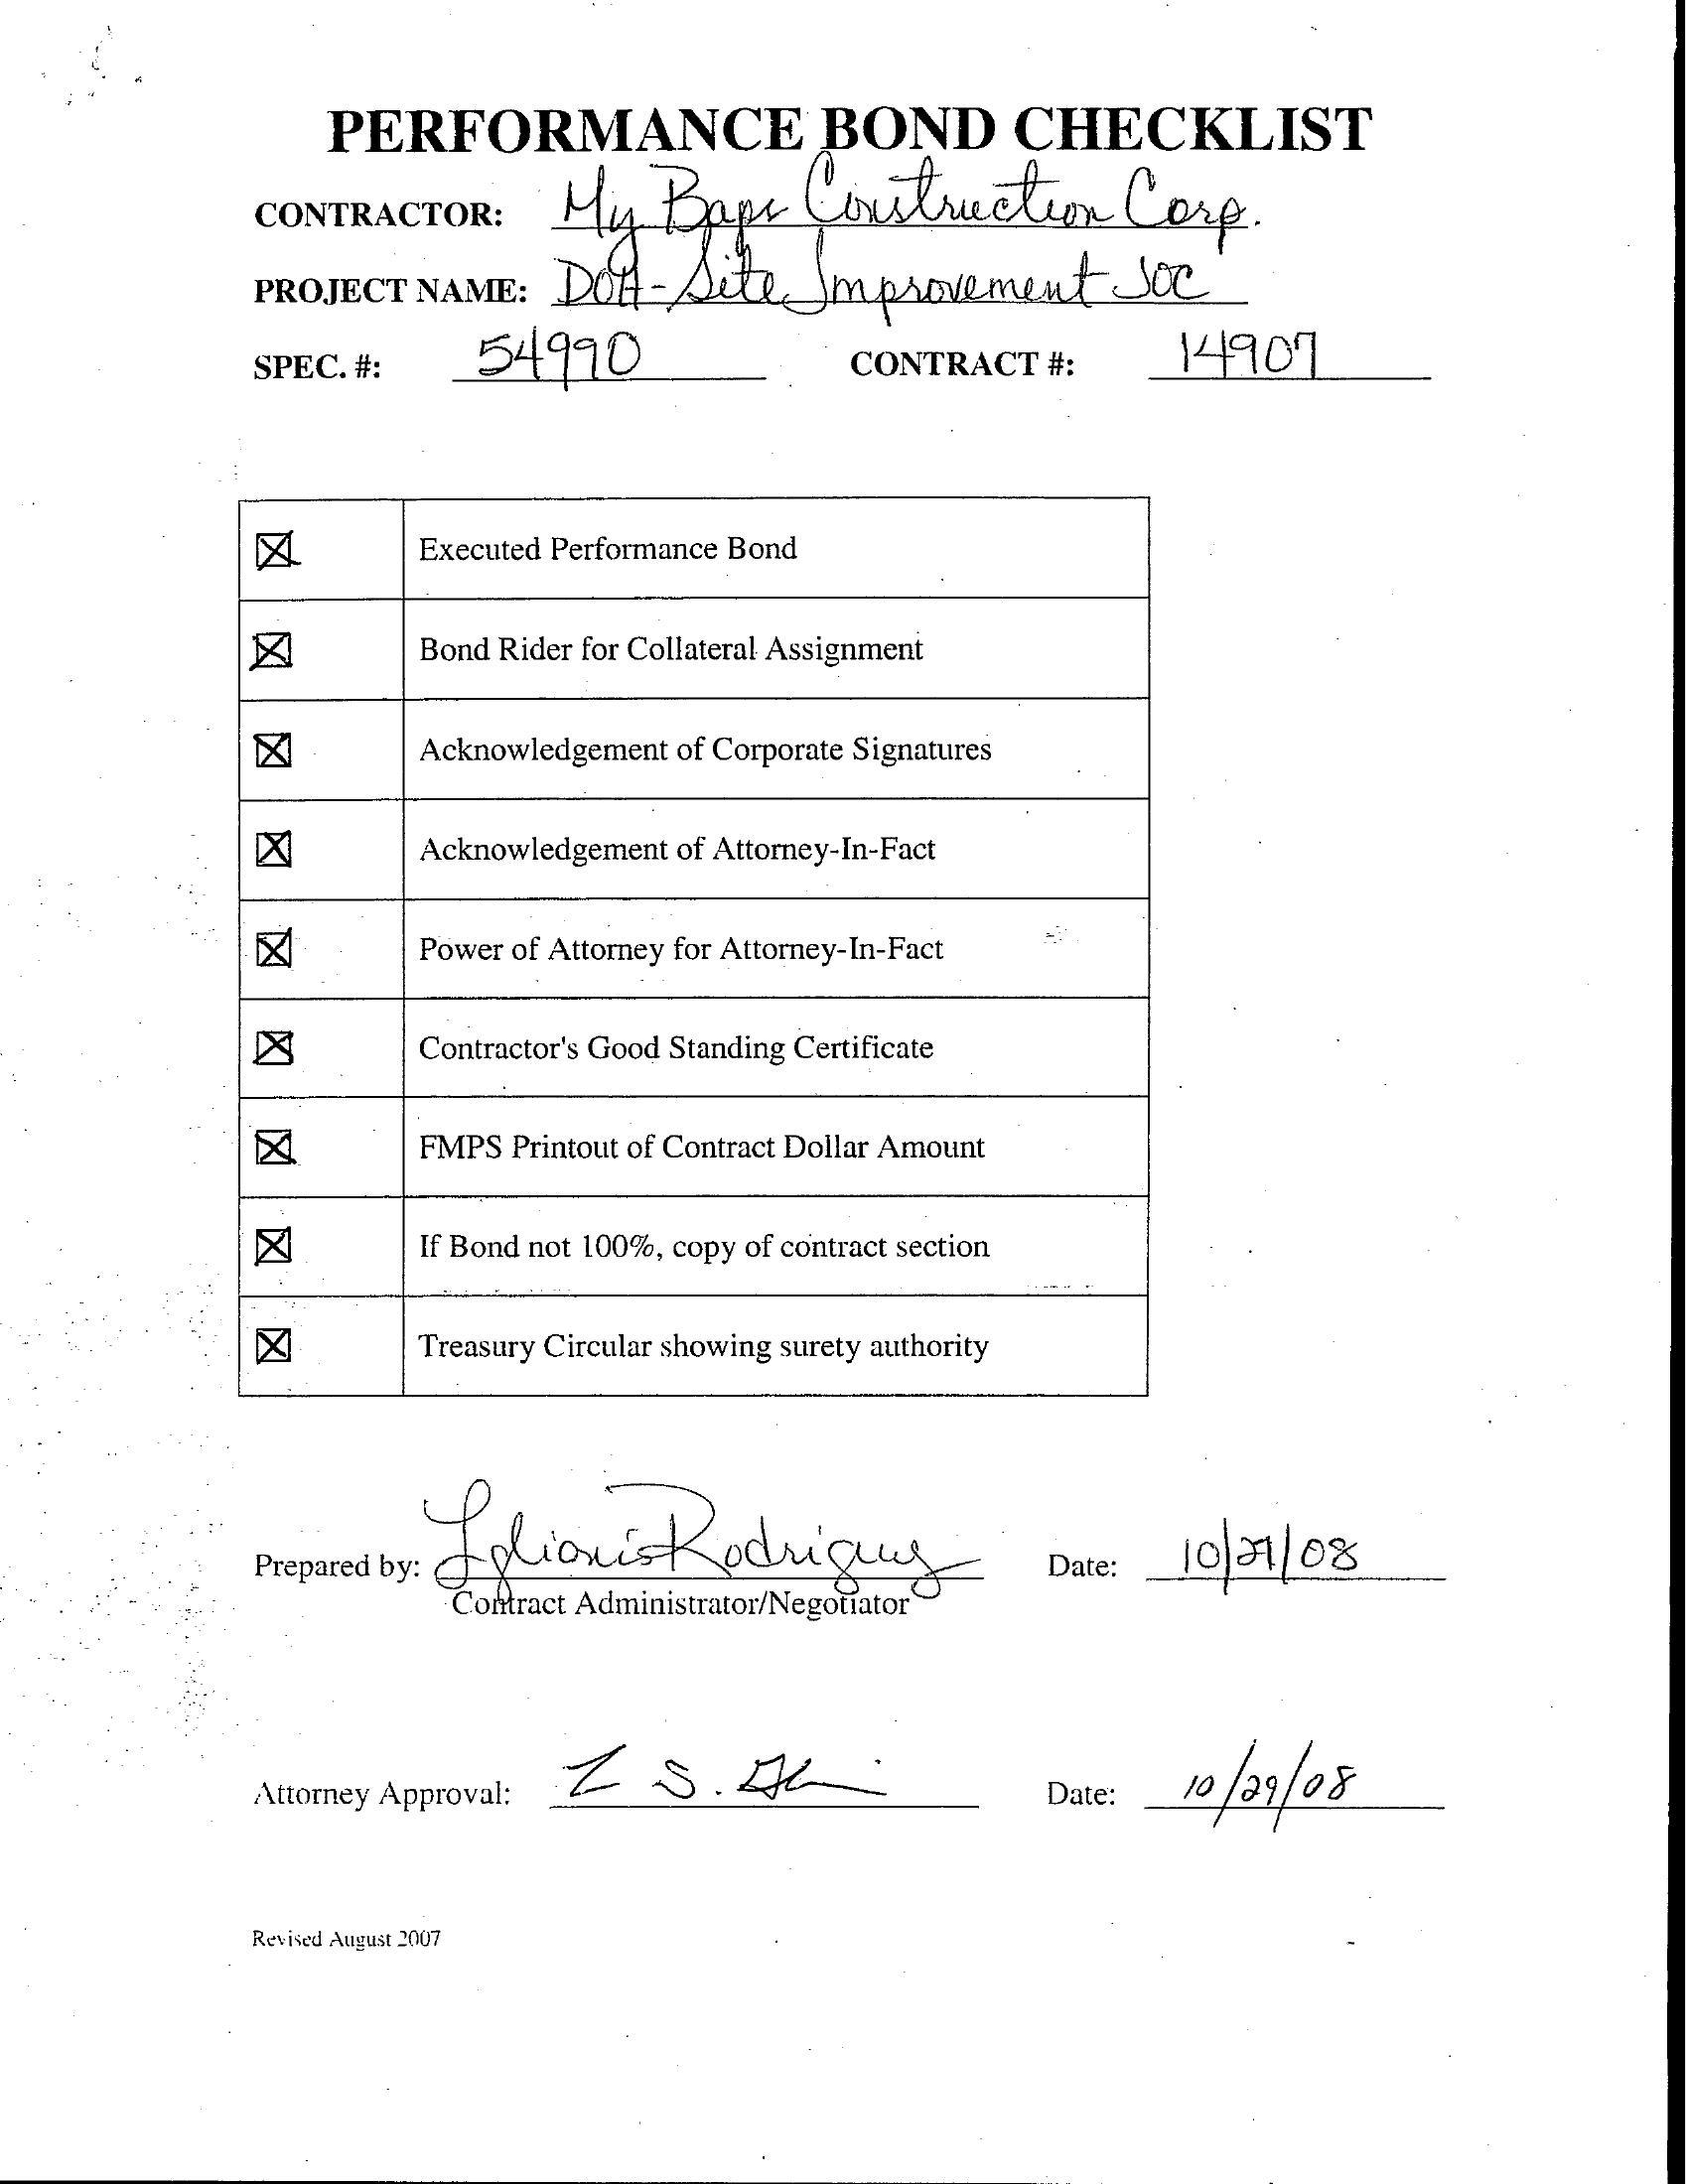 PERFORMANCE BOND CHECKLIST
CONTRACTOR: My Baps Construction Corp.
PROJECT NAME: DOA-Site Improvement JOC
SPEC. #: 54990 CONTRACT #: 14907
Executed Performance Bond
Bond Rider for Collateral Assignment
Acknowledgement of Corporate Signatures
Acknowledgement of Attorney-In-Fact
Power of Attorney for Attorney-In-Fact
Contractor's Good Standing Certificate
FMPS Printout of Contract Dollar Amount
If Bond not 100%, copy of contract section
Treasury Circular showing surety authority
Prepared by: Rodriguez Date:
Contract Administrator/Negotiator
Attorney Approval: Date: 10/29/08
Revised August 2007